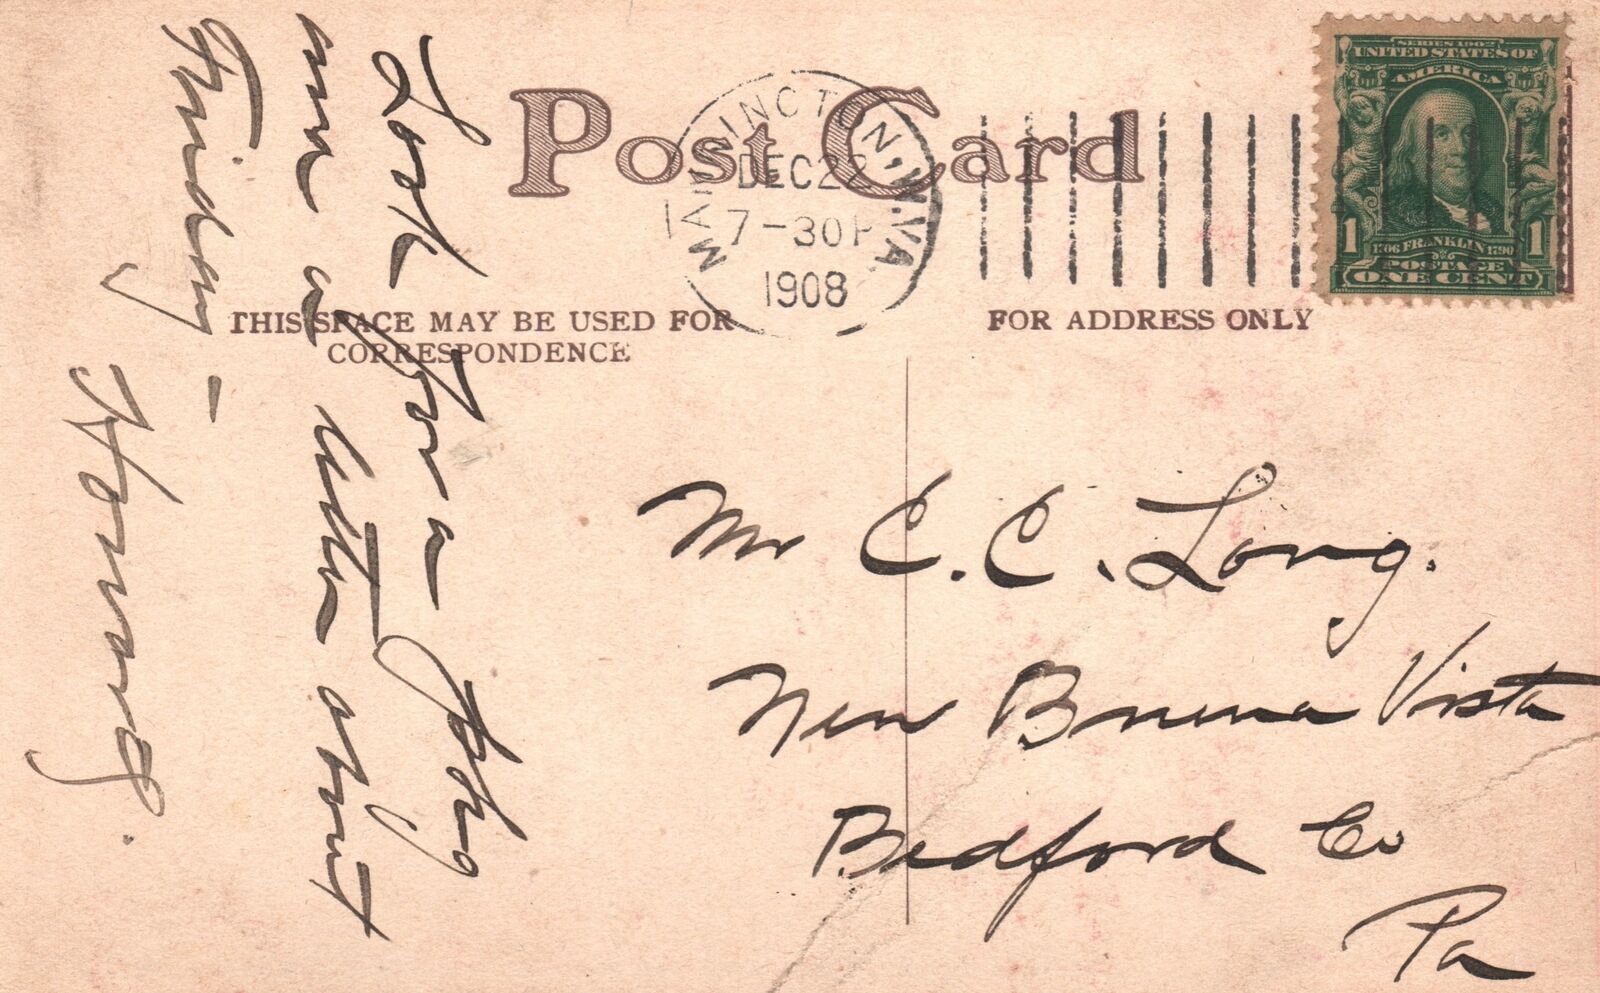 Post Card
MANNINGTON, W.VA.
DEC 22
7-30 P
1908
SERIES 1902
UNITED STATES OF
AMERICA
1 1706 FRANKLIN 1790 1
POSTAGE
ONE CENT
THIS SPACE MAY BE USED FOR
CORRESPONDENCE
FOR ADDRESS ONLY
Look for a
me a letter about
Friday -
Mr C. C. Long.
New Buena Vista
Bedford Co
Pa